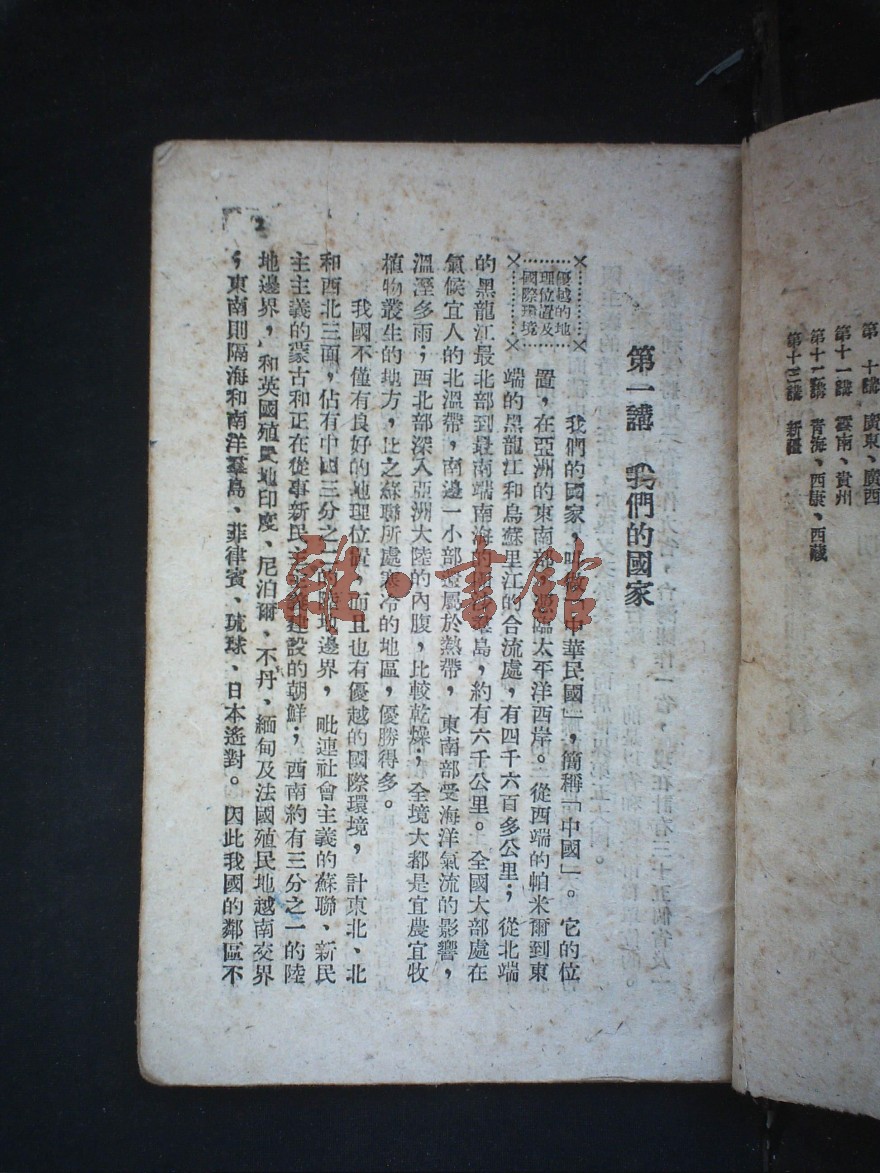 第十講　廣東、廣西
第十一講　雲南、貴州
第十二講　青海、西康、西藏
第十三講　新疆
第一講　我們的國家
優越的地
理位置及
國際環境
我們的國家，叫做「中華民國」，簡稱「中國」。它的位
置，在亞洲的東南部，憑臨太平洋西岸。從西端的帕米爾到東
端的黑龍江和烏蘇里江的合流處，有四千六百多公里；從北端
的黑龍江最北部到最南端南海的羣島，約有六千公里。全國大部處在
氣候宜人的北溫帶，南邊一小部還屬於熱帶，東南部受海洋氣流的影響，
溫溼多雨；西北部深入亞洲大陸的內腹，比較乾燥；全境大都是宜農宜牧
植物叢生的地方，比之蘇聯所處寒冷的地區，優勝得多。
我國不僅有良好的地理位置，而且也有優越的國際環境，計東北、北
和西北三面，佔有中國三分之二的陸地邊界，毗連社會主義的蘇聯、新民
主主義的蒙古和正在從事新民主主義建設的朝鮮；西南約有三分之一的陸
地邊界，和英國殖民地印度、尼泊爾、不丹、緬甸及法國殖民地越南交界
；東南則隔海和南洋羣島、菲律賓、琉球、日本遙對。因此我國的鄰區不
2
雜·書館